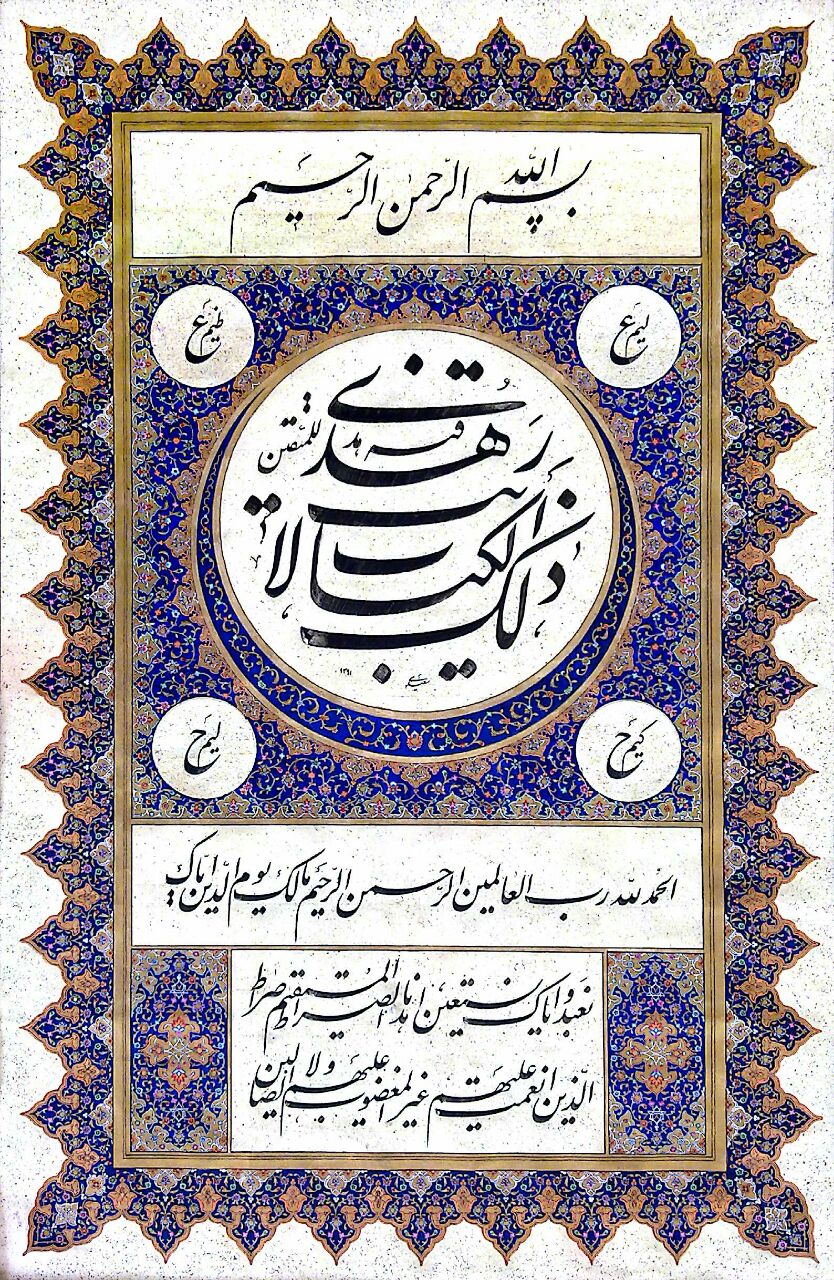 بسم الله الرحمن الرحیم
علیم
عظیم
ذلک الکتاب لا ریب فیه هدی للمتقین
۱۳۹۱
حکیم
حلیم
الحمد لله رب العالمین الرحمن الرحیم مالک یوم الدین ایاک
نعبد و ایاک نستعین اهدنا الصراط المستقیم صراط
الذین انعمت علیهم غیر المغضوب علیهم ولا الضالین